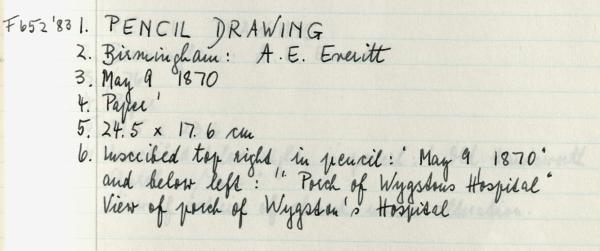 F652'83 1. PENCIL DRAWING
2. Birmingham: A.E. Everitt
3. May 9 1870
4. Paper
5. 24.5 x 17.6 cm
6. Inscribed top right in pencil: "May 9 1870"
and below left: "Porch of Wygstons Hospital"
View of porch of Wygston's Hospital